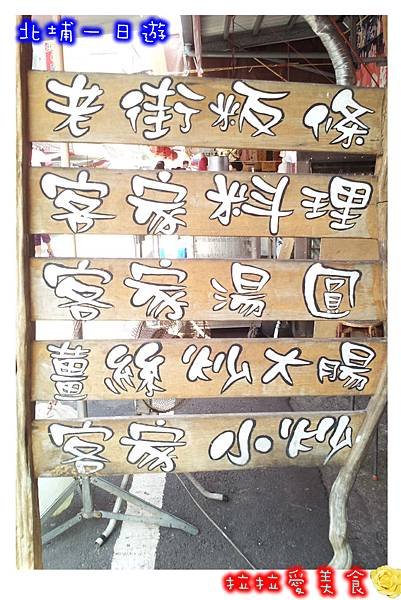 北埔一日遊
老街粄條
客家料理
客家湯圓
薑絲炒大腸
客家小炒
拉拉愛美食